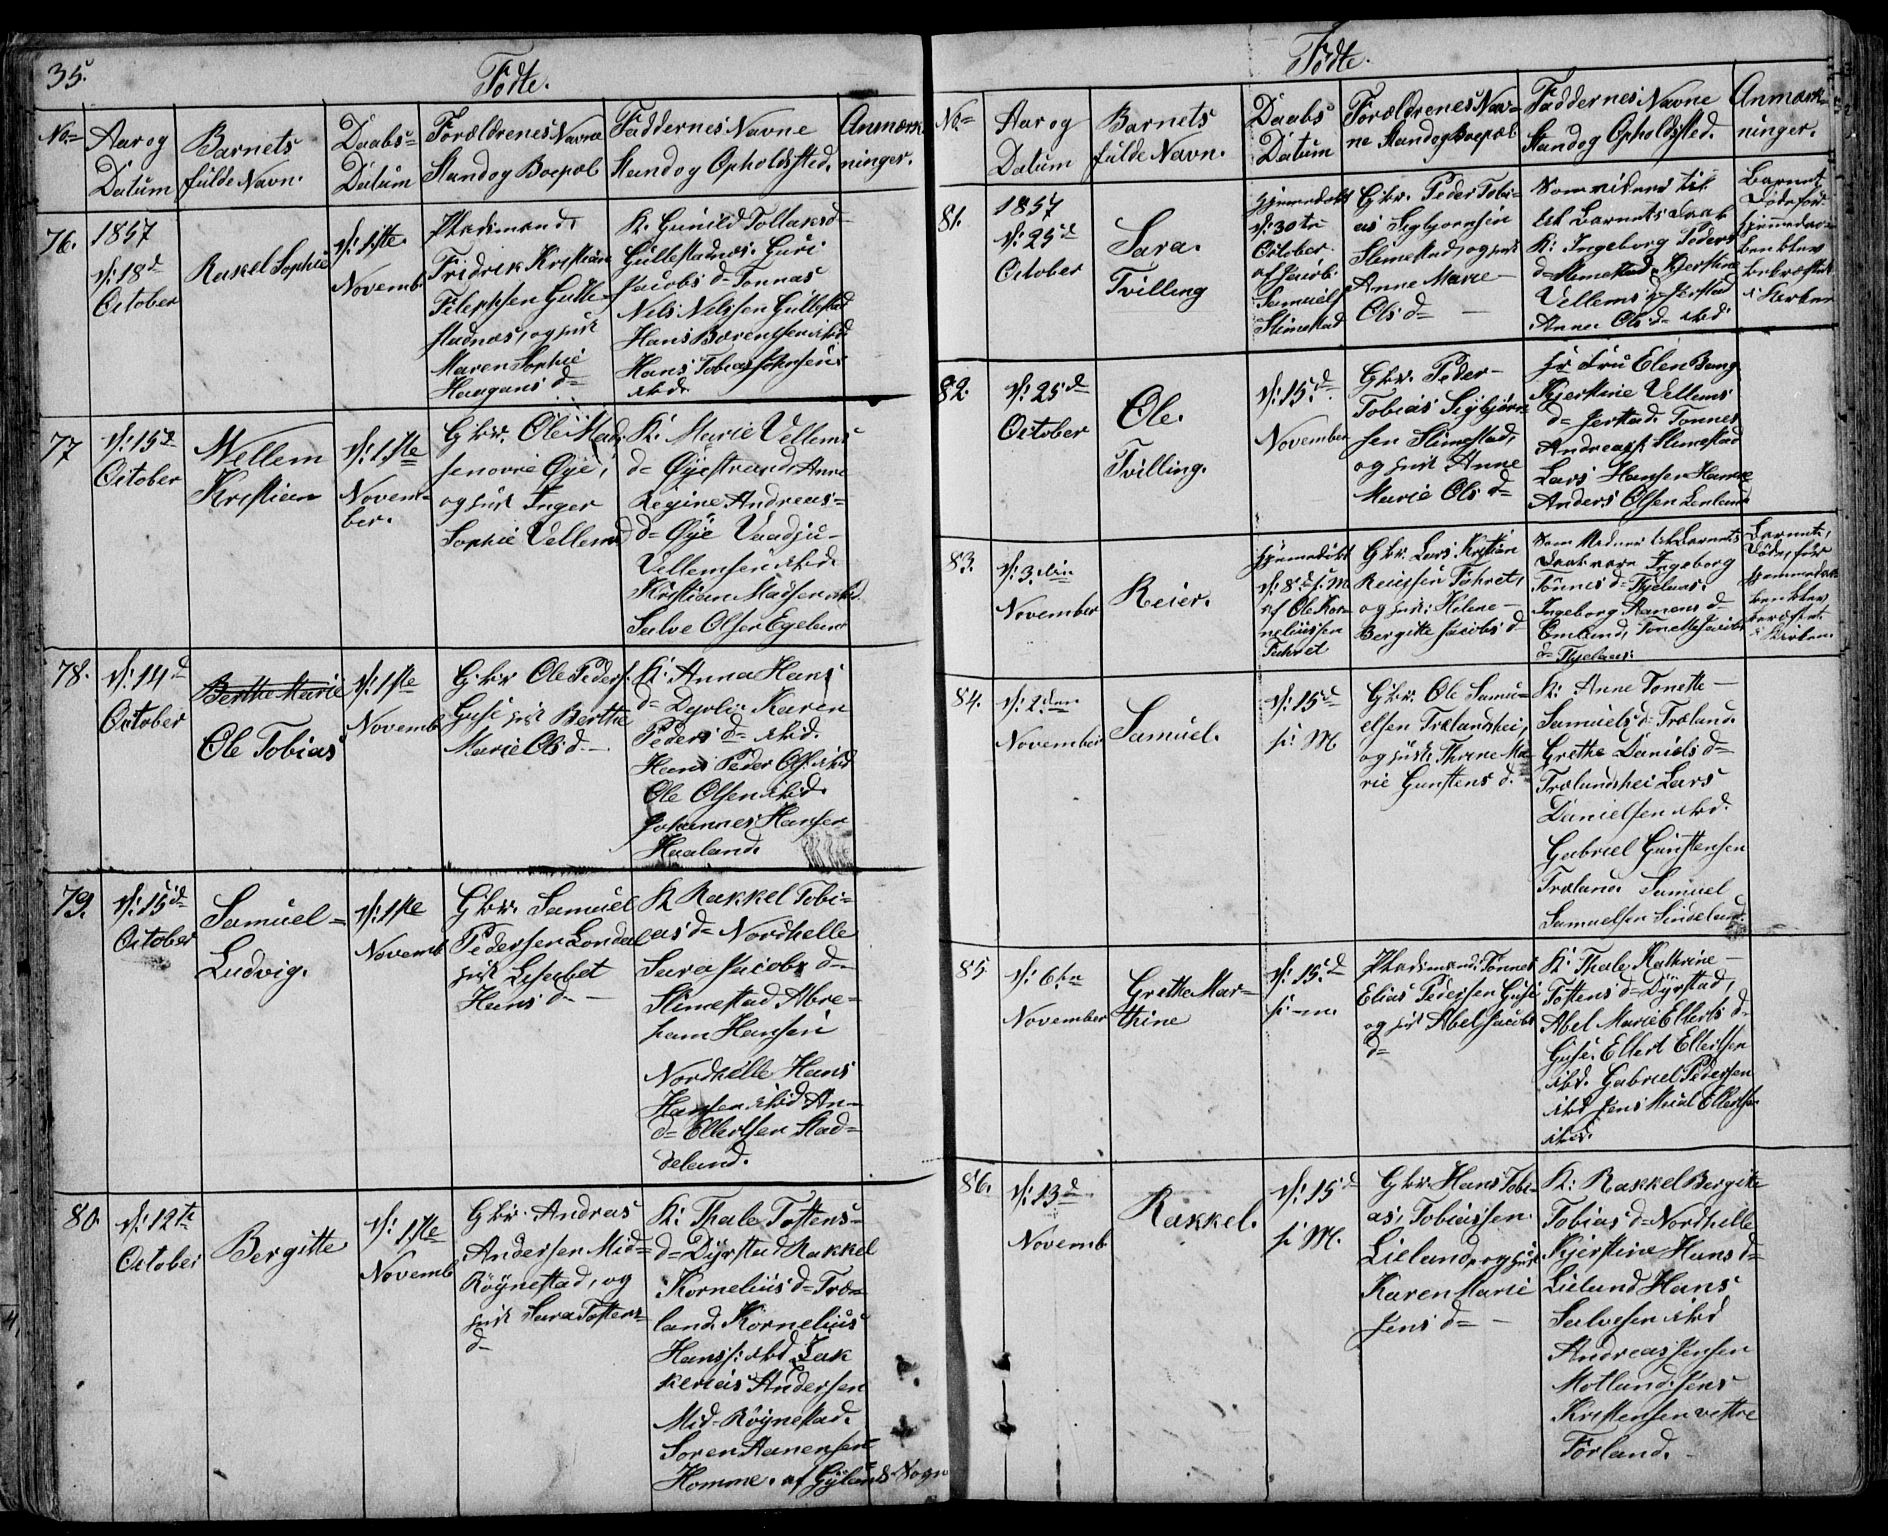 35.
Födte.
No= Aar og Datum Barnets fulde Navn. Daabs= Datum Forældrenes Navne Stand og Boepæl Faddernes Navne Stand og Opholdssted. Anmærkninger.
76.
1857
d: 18d
October
Rakel Sophie
d: 1ste
Novemb
Pladsmand.
Fridrik Kristian
Filepsen Gulle=
stadnes, og hust
Maren Sophie
Haagans d=
K. Gunild Tollaks d=
Gullestadnes. Guri
Jacobs d= Tonnas
Nils Nilssen Gullestad
Hans Barentsen ibd
Hans Tobias Johnsen
ibd.
77
d: 15d
October
Wellem
Kristian
d: 1ste
Novem=
ber.
Gbr. Ole Mad
sen øvre Øye,
og hust Inger
Sophie Vellems d
K: Marie Vellems
d= Øyestrand Anne
Regine Andreas=
d= Øye
Vellemsen ibd.
Kristian Madsen ibd
Salve Olsen Egeland
78.
d: 14d
October
Berthe Marie
Ole Tobias
d: 1ste
Novemb
Gbr Ole Peders.
Guse hust Berthe
Marie Ols d.
K: Anna Hans
d= Dyrli Karen
Peders d= ibd.
Hans Peder Ols. ibd
Ole Olsen ibd.
Johannes Hansen
Haaland.
79.
d: 15d
October
Samuel=
Ludvig.
d: 1ste
Novemb
Gbr. Samuel
Pedersen Londal
hust Lisabet
Hans d.
K Rakkel Tobi=
as d= Nordhelle
Sara Jacobs d=
Slimestad Abra=
ham Hansen
Nordhelle Hans
Hansen ibd An=
d= Ellertsen Stad=
deland.
80.
d: 12te
October
Bergitte
d: 1ste
Novemb
Gbr. Andras
Andersen Mid=
Röynestad, og
hust Sara Tostens
d=
K: Thale Tostens=
d= Dyrstad Rakkel
Kornelius d= Træ=
land. Kornelius
Hanss: ibd Zak
karias Andersen
Mid=Röynestad.
Soren Aanensen
Homme. af Gyland Sogn
Födte.
No= Aar og Datum Barnets fulde Navn. Daabs Datum Forældrenes Nav= ne Stand og Boepæl Faddernes Navne Stand og Opholdssted. Anmærk= ninger.
81.
1857
d: 25d
October
Sara.
Tvilling
hjemmedöbt
d: 30te
October
af Jacob
Samuels
Slimestad
Gbr. Peder Tobi=
as Sigbjørnsen
Slimestad, og hust
Anne Marie
Ols d=
Som vidner til
K: Ingeborg Peders
d= Slimestad, Kjerstine
Vellems d= Jerstad
Anne Ols d= ibd
Barnet
döde för
hjemmedaa=
ben blev
bekræftet
i Kirken
82.
d: 25d
October
Ole.
Tvilling.
d: 15d
November
Gbr. Peder
Tobias Sigbjørn
sen Slimestad,
og hust Anne
Marie Ols d=
Fru Elen Bang
Kjerstine Vellems
d= Jerstad. Tonnes
Andreass. Slimestad
Lars Hansen
Anders Olsen
83.
d: 3die
November
Reier.
hjemmedöbt
d: 8d s: M
af Ole Kor=
neliussen
Gbr. Lars Kristian
Reiersen
og hust: Helene
Bergitte Jacobs d
Som Vidner til Barnets
Daab vare Ingeborg
Tönnes d=
Ingeborg Aanens d=
Omland, Tonette Jacobs
d=
Barnet,
döde, för
hjemmedaa=
ben blev
bekræftet
i Kirken.
84.
d: 2den
November
Samuel.
d: 15d
s: M
Gbr. Ole Samu=
elsen Trælandshei,
og hust. Thrine Ma=
rie Gunstens d.
K: Anne Tonette
Samuels d= Træland.
Grethe Daniels d=
Trælandshei Lars
Danielsen ibd.
Gabriel Gunstensen
Træland. Samuel
Samuelsen Sindeland.
85.
d: 6te
November
Grethe Mar=
thine
d: 15d
s: m.
Pladsmand. Tönnes
Elias Pedersen Guse
og hust Abel Jacobs
d=
K: Thale Kathrine
Tostens d= Dyrstad,
Abel Marie Ellerts d=
Guse. Ellert Ellertsen
ibd. Gabriel Pedersen
ibd Jens Ellertsen
ibd.
86.
d: 13d
Novemb
Rakkel.
d: 15d
s: M.
Gbr. Hans Tobi=
as, Tobiassen
Lieland, og hust
Karen Marie
Jens d=
K: Rakkel Bergite
Tobias d= Nordhelle
Kjerstine Hans d=
Lieland Hans
Salvesen ibd
Andreas Jensen
Motland. Jens
Kristensen vestre
Förland.